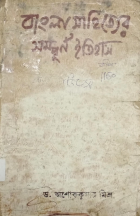 বাংলা সাহিত্যের
সম্পূর্ণ ইতিহাস
ড. অশোককুমার মিশ্র